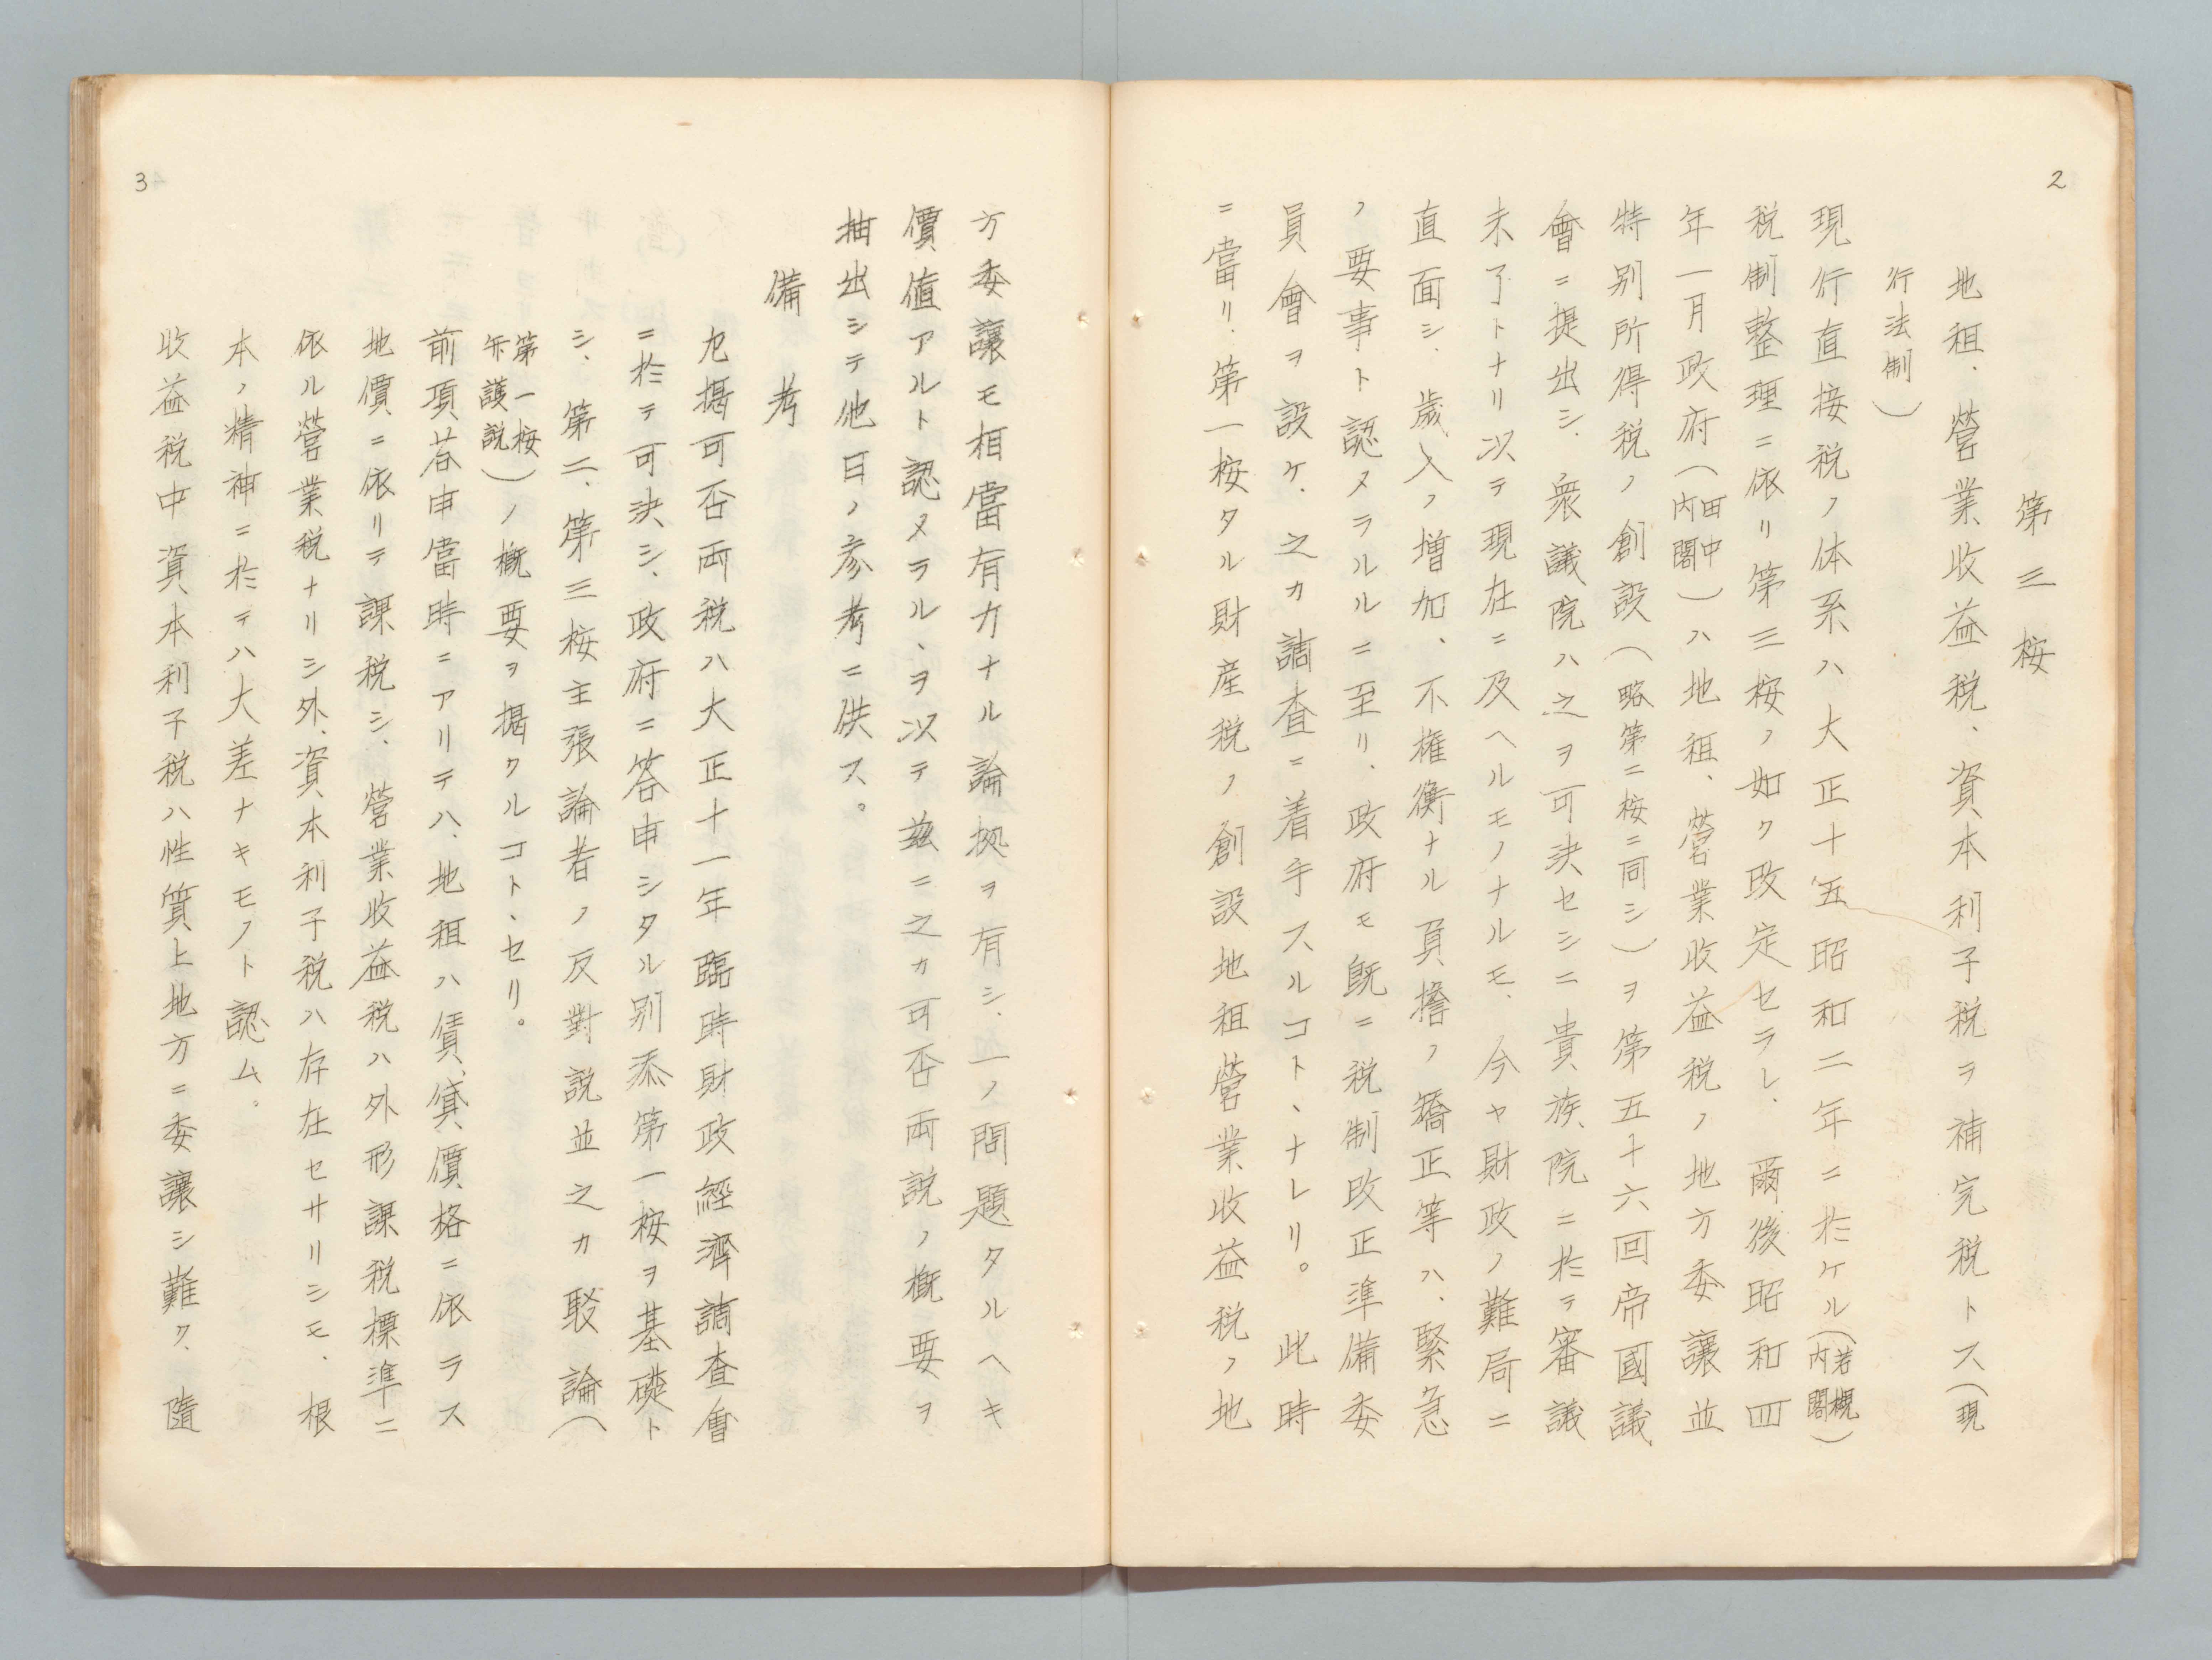 2
第三桉
地租、營業收益税、資本利子税ヲ補完税トス(現
行法制)
現行直接税ノ体系ハ大正十五昭和二年ニ於ケル(若槻内閣)
税制整理ニ依リ第三桉ノ如ク改定セラレ、爾後昭和四
年一月政府(田中内閣)ハ地租、營業收益税ノ地方委讓並
特别所得税ノ創設(略第二桉ニ同シ)ヲ第五十六回帝國議
會ニ提出シ、衆議院ハ之ヲ可決セシニ貴族院ニ於テ審議
未了トナリ以テ現在ニ及ヘルモノナルモ、今ヤ財政ノ難局ニ
直面シ、歳入ノ増加、不権衡ナル負擔ノ矯正等ハ、緊急
ノ要事ト認メラルルニ至リ、政府モ既ニ税制改正準備委
員會ヲ設ケ、之カ調査ニ着手スルコトヽナレリ。此時
ニ當リ、第一桉タル財産税ノ創設地租營業收益税ノ地
3
方委讓モ相當有力ナル論拠ヲ有シ、一ノ問題タルヘキ
價値アルト認メラル、ヲ以テ玆ニ之カ可否両説ノ概要ヲ
抽出シテ他日ノ参考ニ供ス。
備考
九揭可否両税ハ大正十一年臨時財政經濟調査會
ニ於テ可決シ、政府ニ答申シタル別添第一桉ヲ基礎ト
シ、第二、第三桉主張論者ノ反對説並之カ駁論(
第一桉弁護説)ノ概要ヲ揭クルコトヽセリ。
前項答申當時ニアリテハ、地租ハ賃貸價格ニ依ラス
地價ニ依リテ課税シ、營業收益税ハ外形課税標準ニ
依ル營業税ナリシ外、資本利子税ハ存在セサリシモ、根
本ノ精神ニ於テハ大差ナキモノト認ム。
收益税中資本利子税ハ性質上地方ニ委讓シ難ク、隨